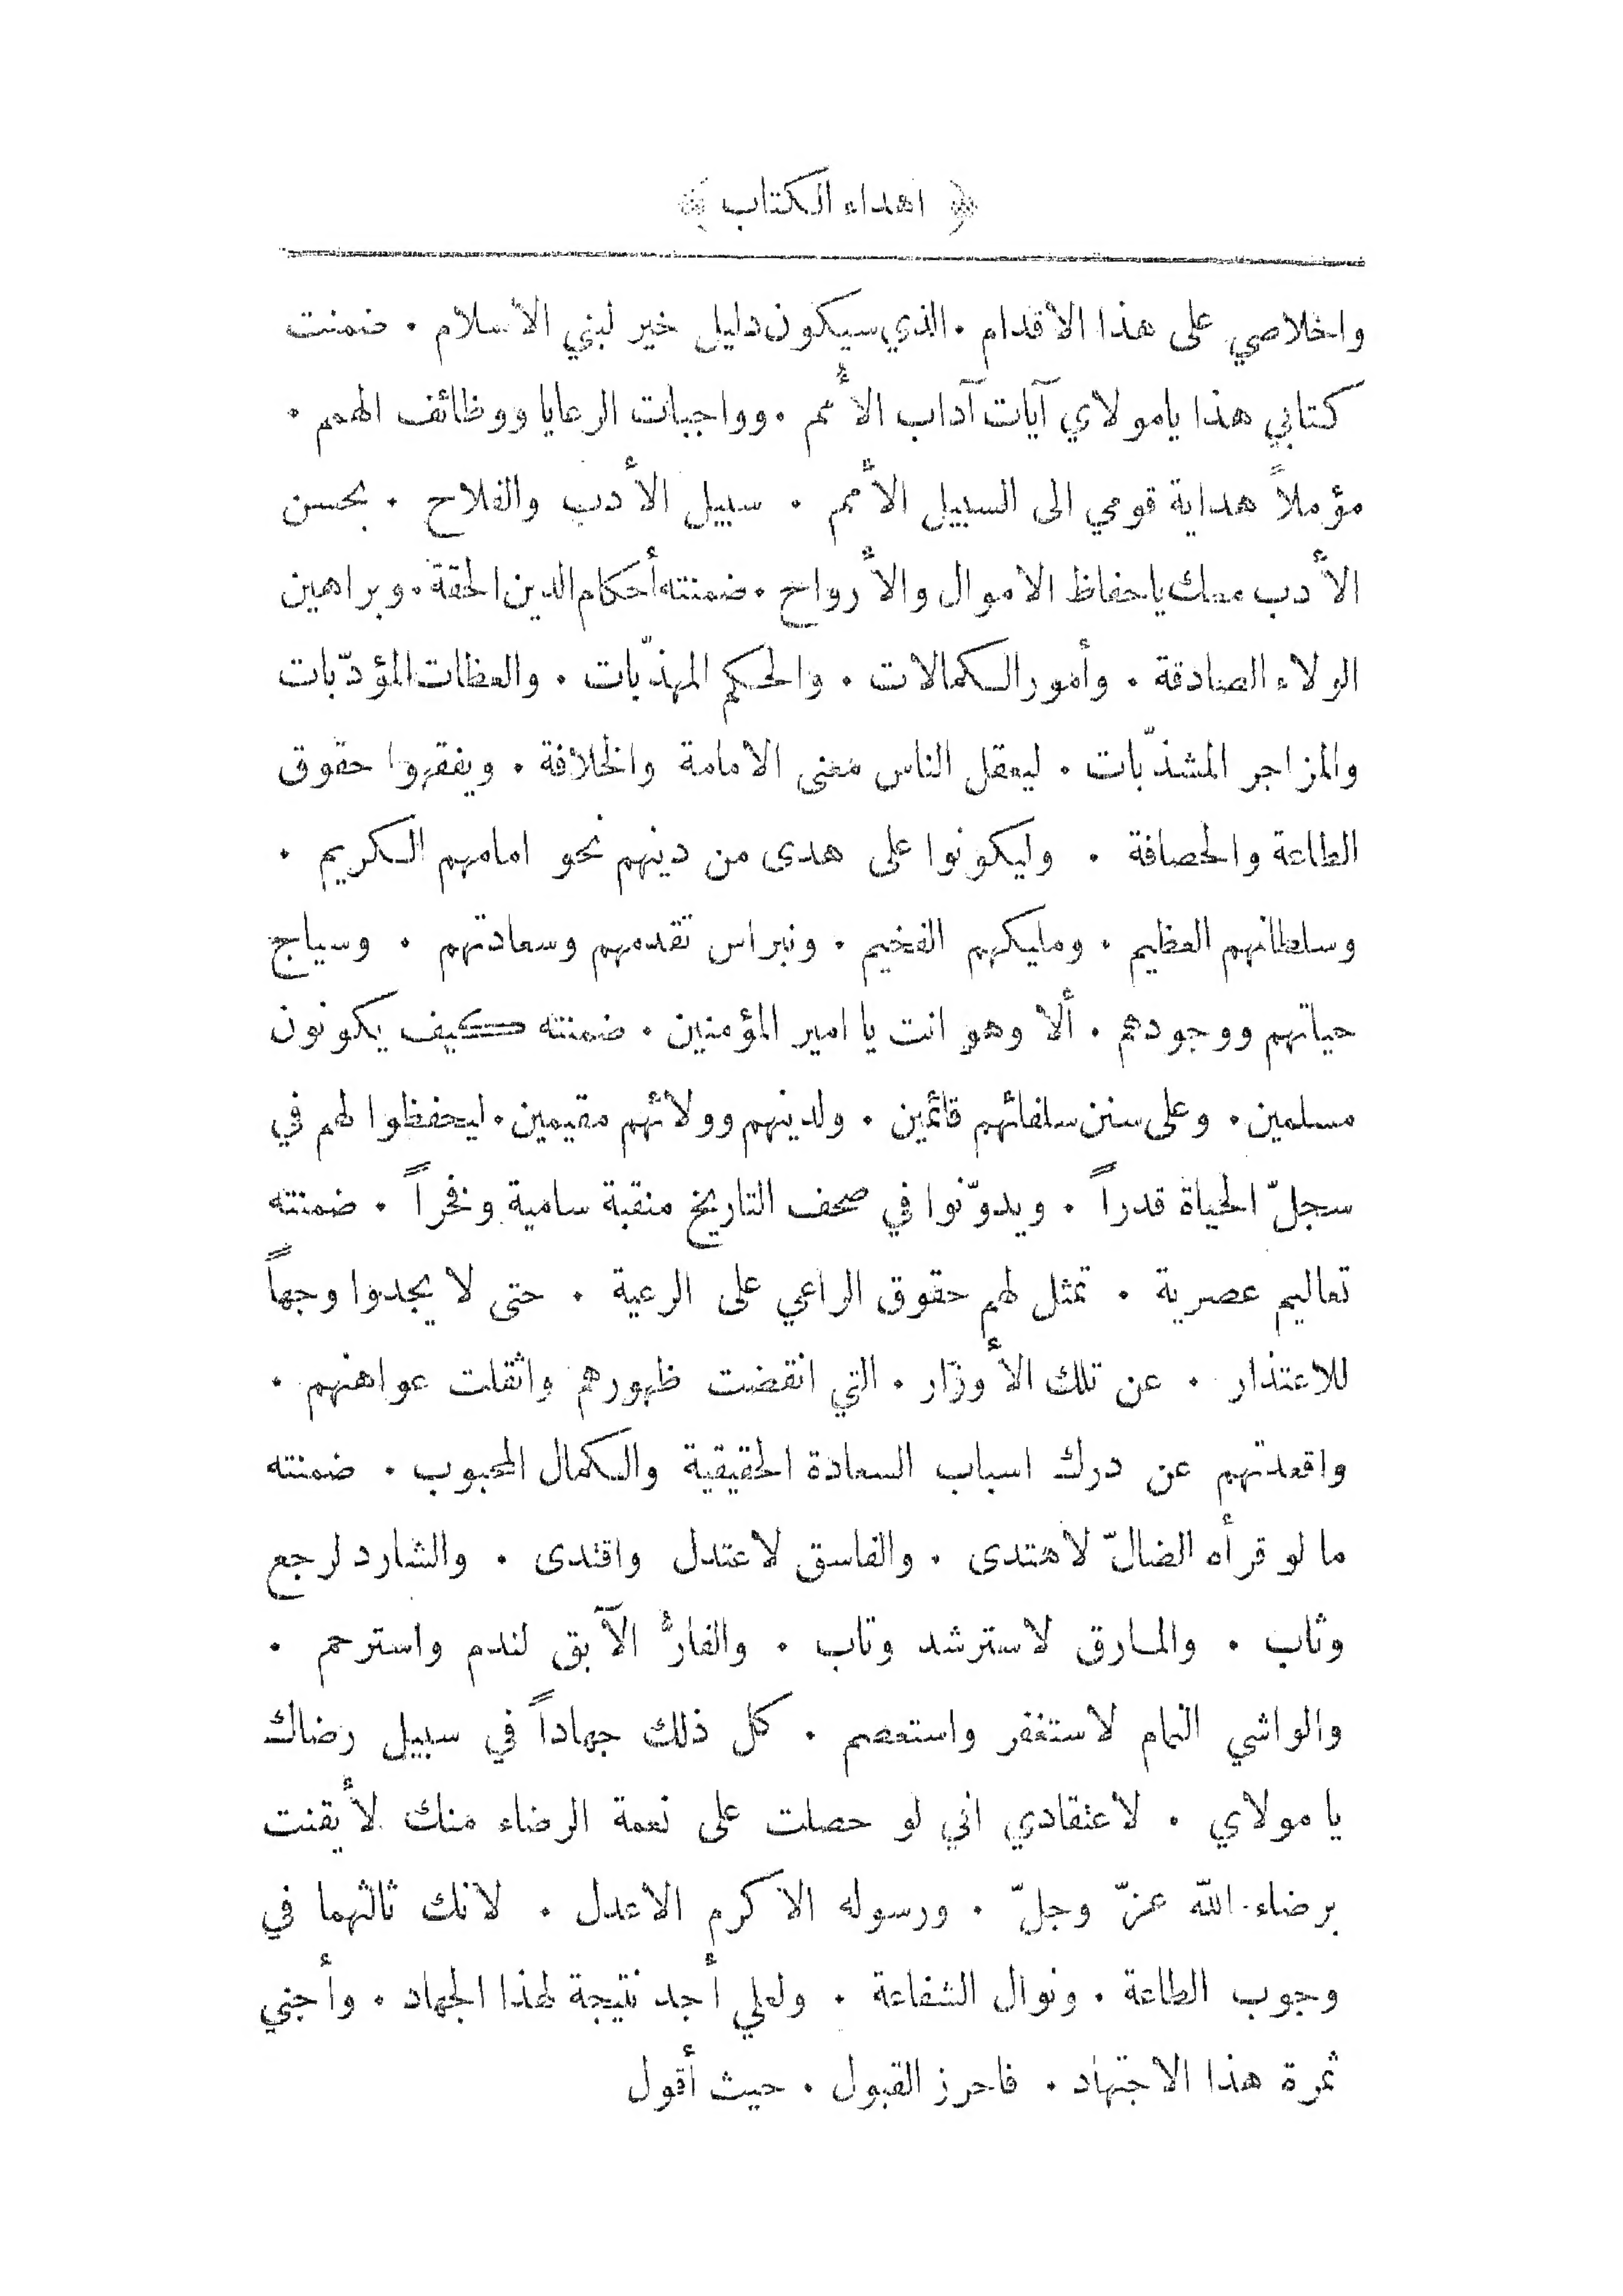 ﴿ اهداء الكتاب ﴾
واخلاصي على هذا الاقدام . الذي سيكون دليل خير لبني الاسلام . ضمنت
كتابي هذا يا مولاي آيات آداب الأُمم . وواجبات الرعايا ووظائف الهمم .
مؤملاً هداية قومي الى السبيل الأَمم . سبيل الأدب والفلاح . بحسن
الأدب معك يا حفاظ الاموال والأَرواح . ضمنته أحكام الدين الحقة . وبراهين
الولاء الصادقة . وأمور الكمالات . والحكم المهذّبات . والعظات المؤدّبات
والمزاجر المشذّبات . ليعقل الناس معنى الامامة والخلافة . ويفقهوا حقوق
الطاعة والحصافة . وليكونوا على هدى من دينهم نحو امامهم الكريم .
وسلطانهم العظيم . ومليكهم الفخيم . ونبراس تقدمهم وسعادتهم . وسياج
حياتهم ووجودهم . ألا وهو انت يا امير المؤمنين . ضمنته كيف يكونون
مسلمين . وعلى سنن سلفائهم قائمين . ولدينهم وولائهم مقيمين . ليحفظوا لهم في
سجلّ الحياة قدراً . ويدوّنوا في صحف التاريخ منقبة سامية وفخراً . ضمنته
تعاليم عصرية . تمثل لهم حقوق الراعي على الرعية . حتى لا يجدوا وجهاً
للاعتذار . عن تلك الأوزار . التي انقضت ظهورهم واثقلت عواهنهم .
واقعدتهم عن درك اسباب السعادة الحقيقية والكمال المحبوب . ضمنته
ما لو قرأه الضالّ لاهتدى . والفاسق لاعتدل واقتدى . والشارد لرجع
وثاب . والمارق لاسترشد وتاب . والفارُّ الآبق لندم واسترحم .
والواشي النمام لاستغفر واستعصم . كل ذلك جهاداً في سبيل رضاك
يا مولاي . لاعتقادي اني لو حصلت على نعمة الرضاء منك لأيقنت
برضاء الله عزّ وجلّ . ورسوله الاكرم الاعدل . لانك ثالثهما في
وجوب الطاعة . ونوال الشفاعة . ولعلي أجد نتيجة لهذا الجهاد . وأجني
ثمرة هذا الاجتهاد . فاحرز القبول . حيث أقول